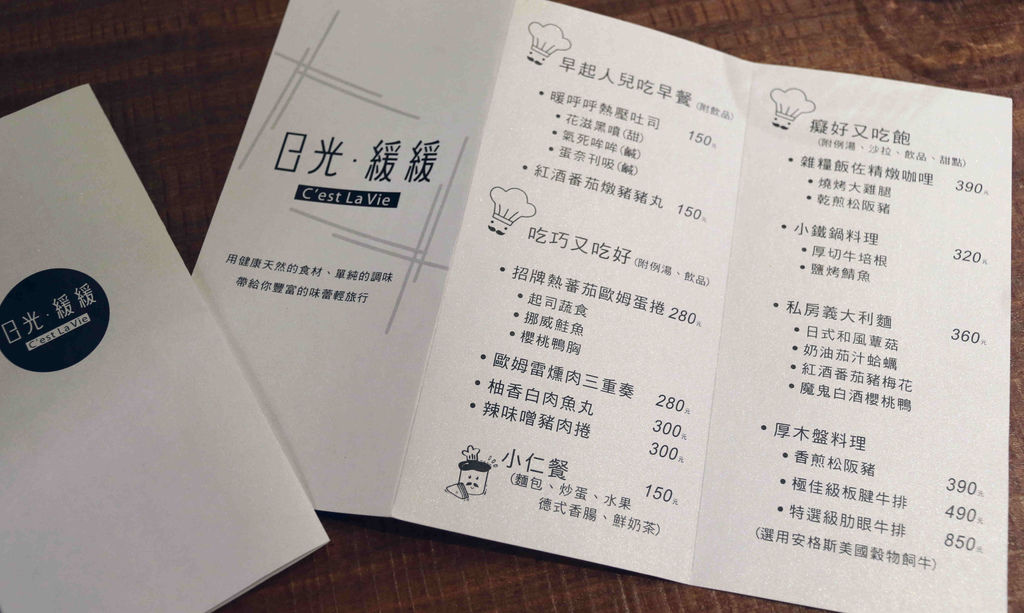 日光·緩緩
C'est La Vie
日光·緩緩
C'est La Vie
用健康天然的食材、單純的調味
帶給你豐富的味蕾輕旅行
早起人兒吃早餐(附飲品)
• 暖呼呼熱壓吐司 150元
• 花滋黑噴(甜)
• 氣死哞哞(鹹)
• 蛋奈刊吸(鹹)
• 紅酒番茄燉豬豬丸 150元
吃巧又吃好(附例湯、飲品)
• 招牌熱蕃茄歐姆蛋捲 280元
• 起司蔬食
• 挪威鮭魚
• 櫻桃鴨胸
• 歐姆雷燻肉三重奏 280元
• 柚香白肉魚丸 300元
• 辣味噌豬肉捲 300元
小仁餐 150元
(麵包、炒蛋、水果
德式香腸、鮮奶茶)
癡好又吃飽
(附例湯、沙拉、飲品、甜點)
• 雜糧飯佐精燉咖哩 390元
• 燒烤大雞腿
• 乾煎松阪豬
• 小鐵鍋料理 320元
• 厚切牛培根
• 鹽烤鯖魚
• 私房義大利麵 360元
• 日式和風蕈菇
• 奶油茄汁蛤蠣
• 紅酒番茄豬梅花
• 魔鬼白酒櫻桃鴨
• 厚木盤料理
• 香煎松阪豬 390元
• 極佳級板腱牛排 490元
• 特選級肋眼牛排 850元
(選用安格斯美國穀物飼牛)